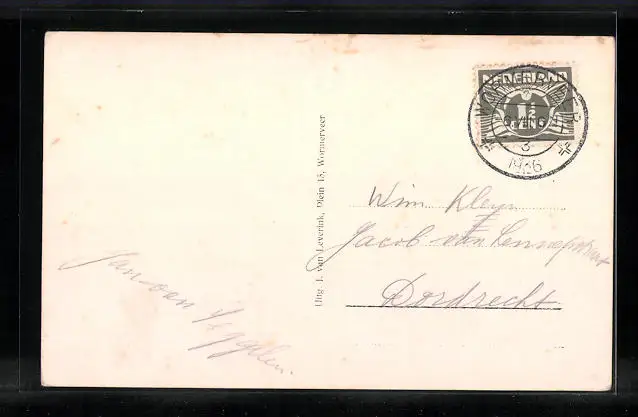 NEDERLAND
1½
WORMERVEER
3
1936
Uitg. J. van Leverink, Plein 15, Wormerveer
Wim Kleyn
Jacob van Lennepstraat
Dordrecht
Jan van